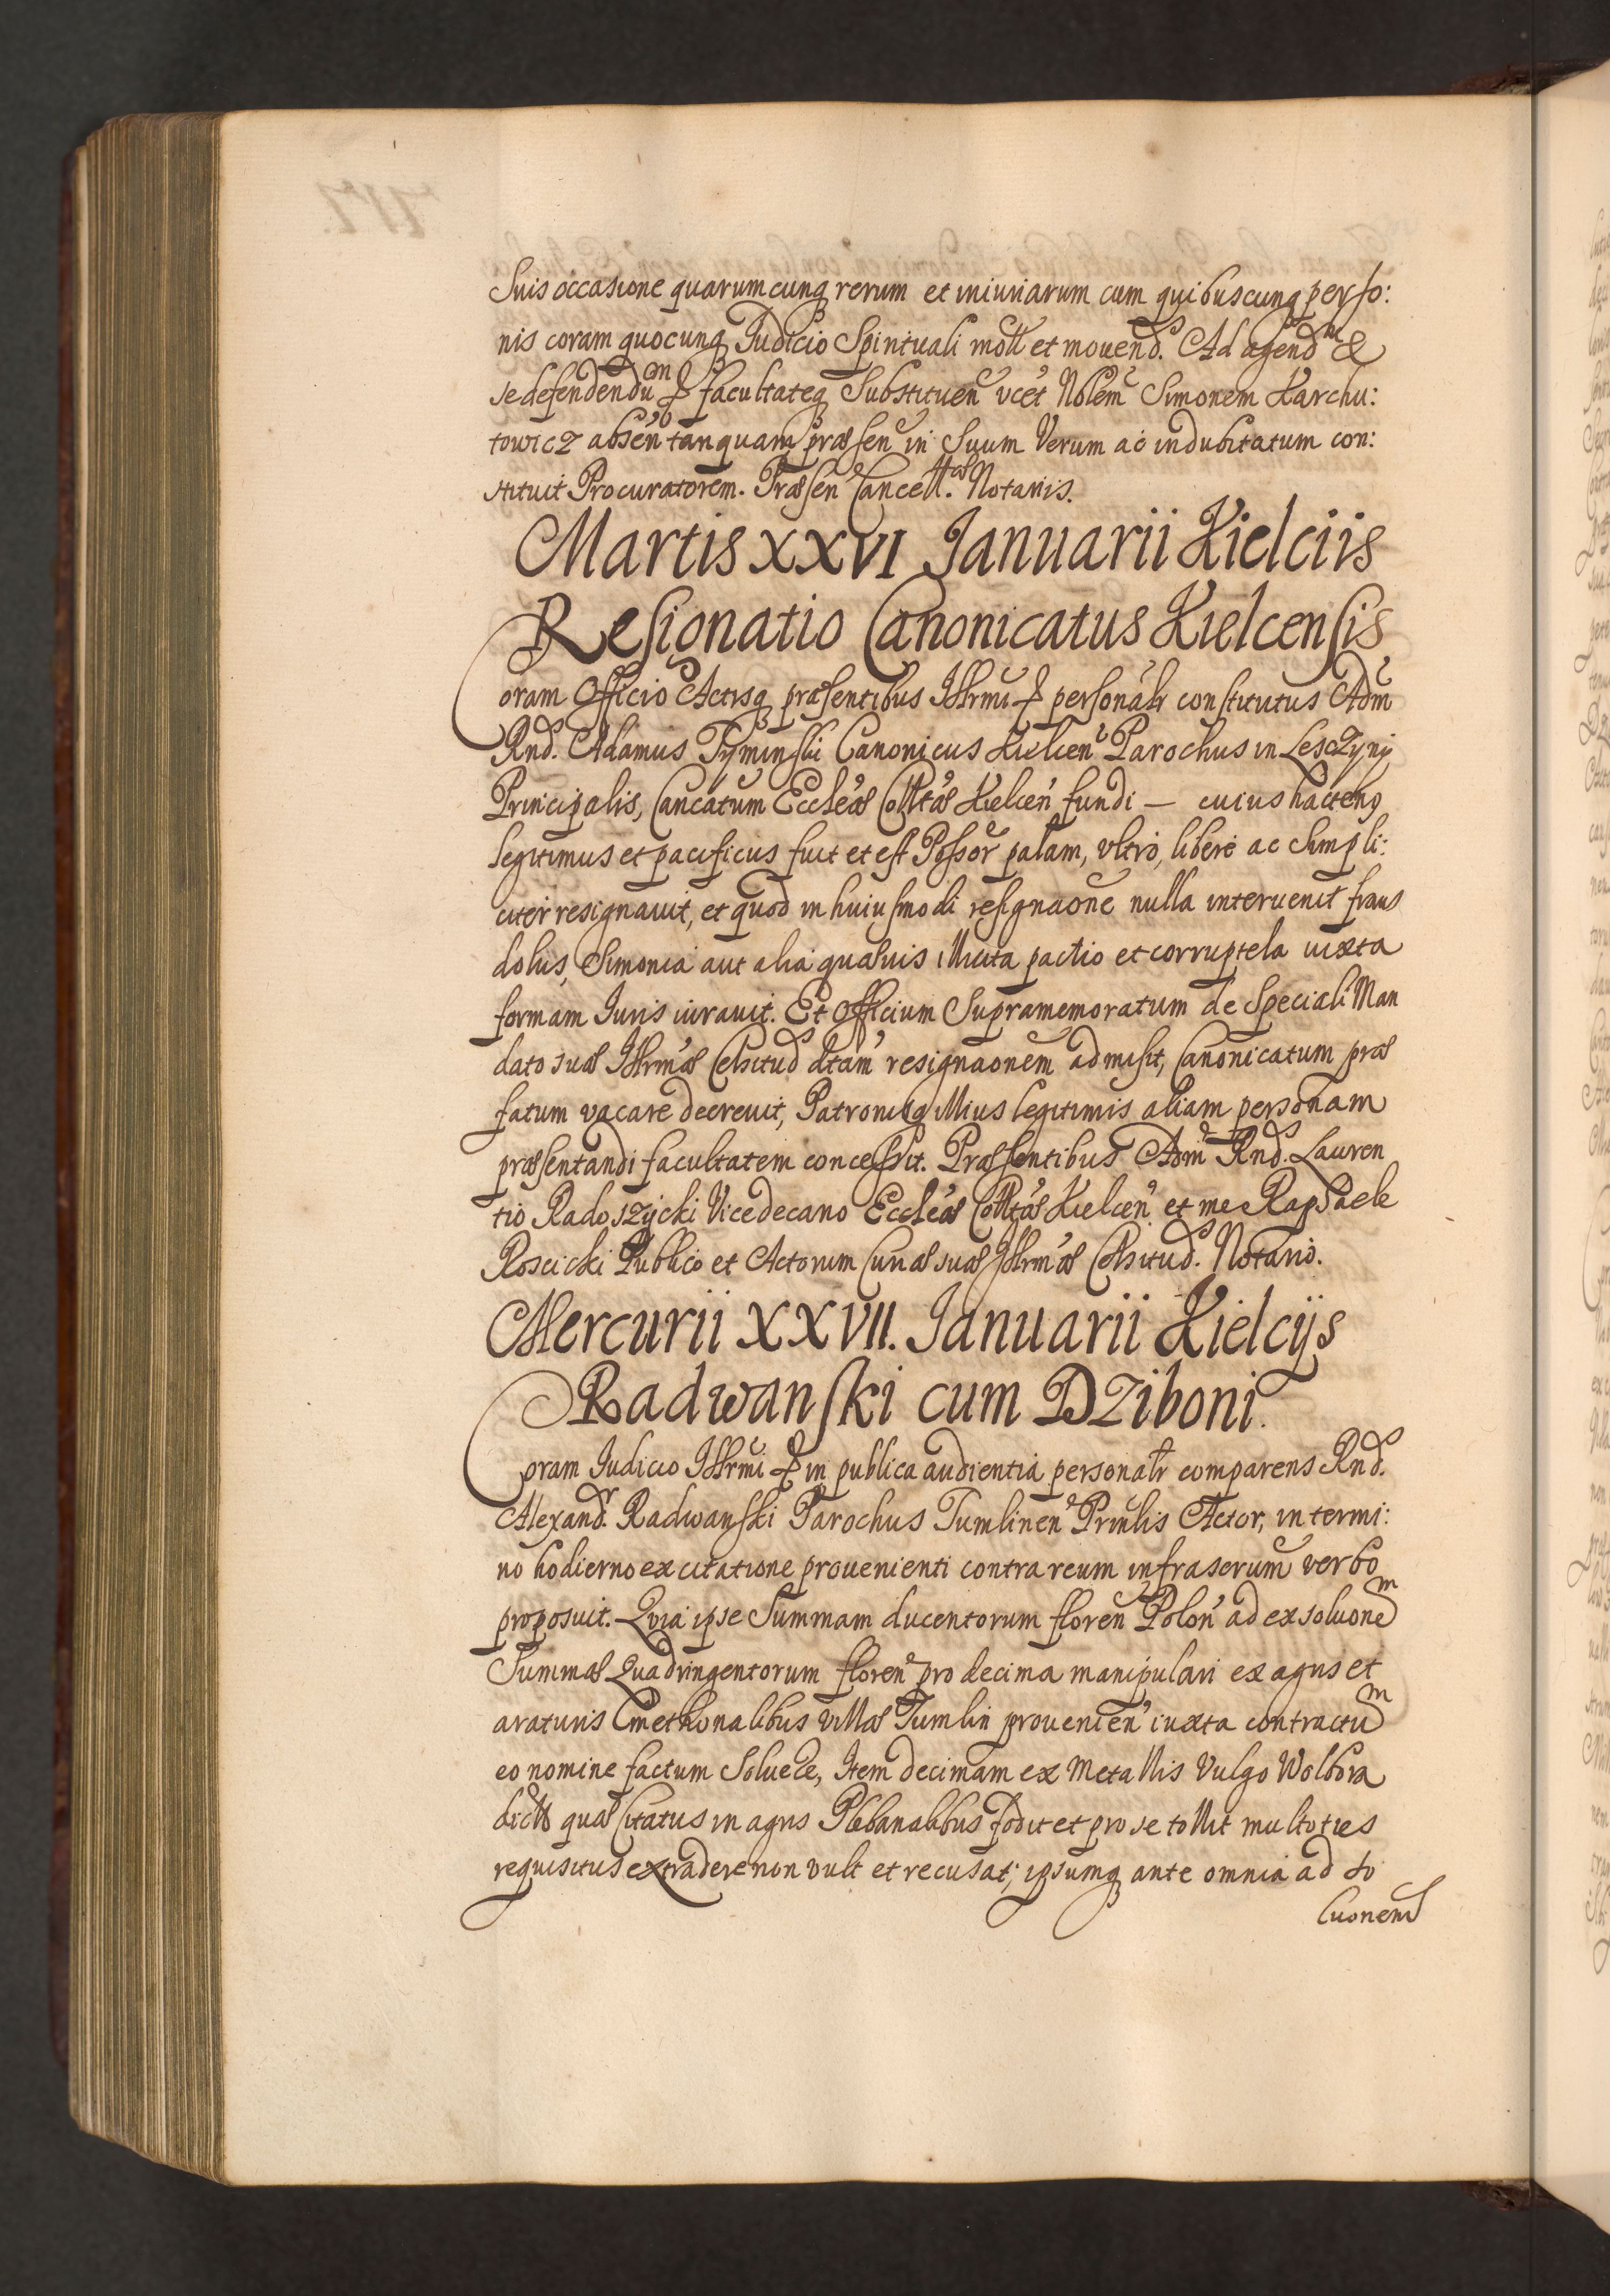 Suis occasione quarumcunq rerum et iniuriarum cum quibuscunq perso:
nis coram quocunq Iudicio Spirituali mot et mouend. Ad agend &
se defendendum facultateq Substituen vcet Nobem Simonem Karchu:
towicz absen tanquam præsen in Suum Verum ac indubitatum con:
stituit Procuratorem. Præsen Cancell. Notariis.
Martis XXVI Ianuarii Kielciis
Resignatio Canonicatus Kielcensis
Coram Officio Actisq præsentibus Illrmi personalr constitutus Adm
Rnd. Adamus Tyminski Canonicus Kielcen Parochus in Lesczyny
Principalis, Cancatum Eccleæ Colltæ Kielcen fundi — cuius hactenq
legitimus et pacificus fuit et est Possor palam, vltro, libere ac Simpli:
citer resignauit, et quod in huiusmodi resignaone nulla interuenit fraus
dolus, Simonia aut alia quæuis illicita pactio et corruptela iuxta
formam Iuris iurauit. Et Officium Supramemoratum de Speciali Man
dato suæ Illrmæ Celsitud dtam resignaonem admisit, Canonicatum præ
fatum vacare decreuit, Patronisq illius legitimis aliam personam
præsentandi facultatem concessit. Præsentibus Adm Rnd. Lauren
tio Radoszycki Vicedecano Eccleæ Colltæ Kielcen et me Raphaele
Roscicki Publico et Actorum Curiæ suæ Illrmæ Celsitud. Notario.
Mercurii XXVII. Ianuarii Kielcijs
Radwanski cum Dziboni.
Coram Iudicio Illrmi in publica audientia personalr comparens Rnd.
Alexandr. Radwanski Parochus Tumlinen Prinlis Actor, in termi:
no hodierno ex citatione prouenienti contra reum infrascrum verbo
proposuit. Quia ipse Summam ducentorum floren Polon ad exsoluonem
Summæ Quadringentorum floren pro decima manipulari ex agris et
araturis Cmethonalibus villæ Tumlin prouenien iuxta contractum
eo nomine factum Soluere, Item decimam ex Metallis Vulgo Wolbora
dict quas Citatus in agris Plebanalibus fodit et pro se tollit multoties
requisitus extradere non vult et recusat, ipsumq ante omnia ad so
luonem